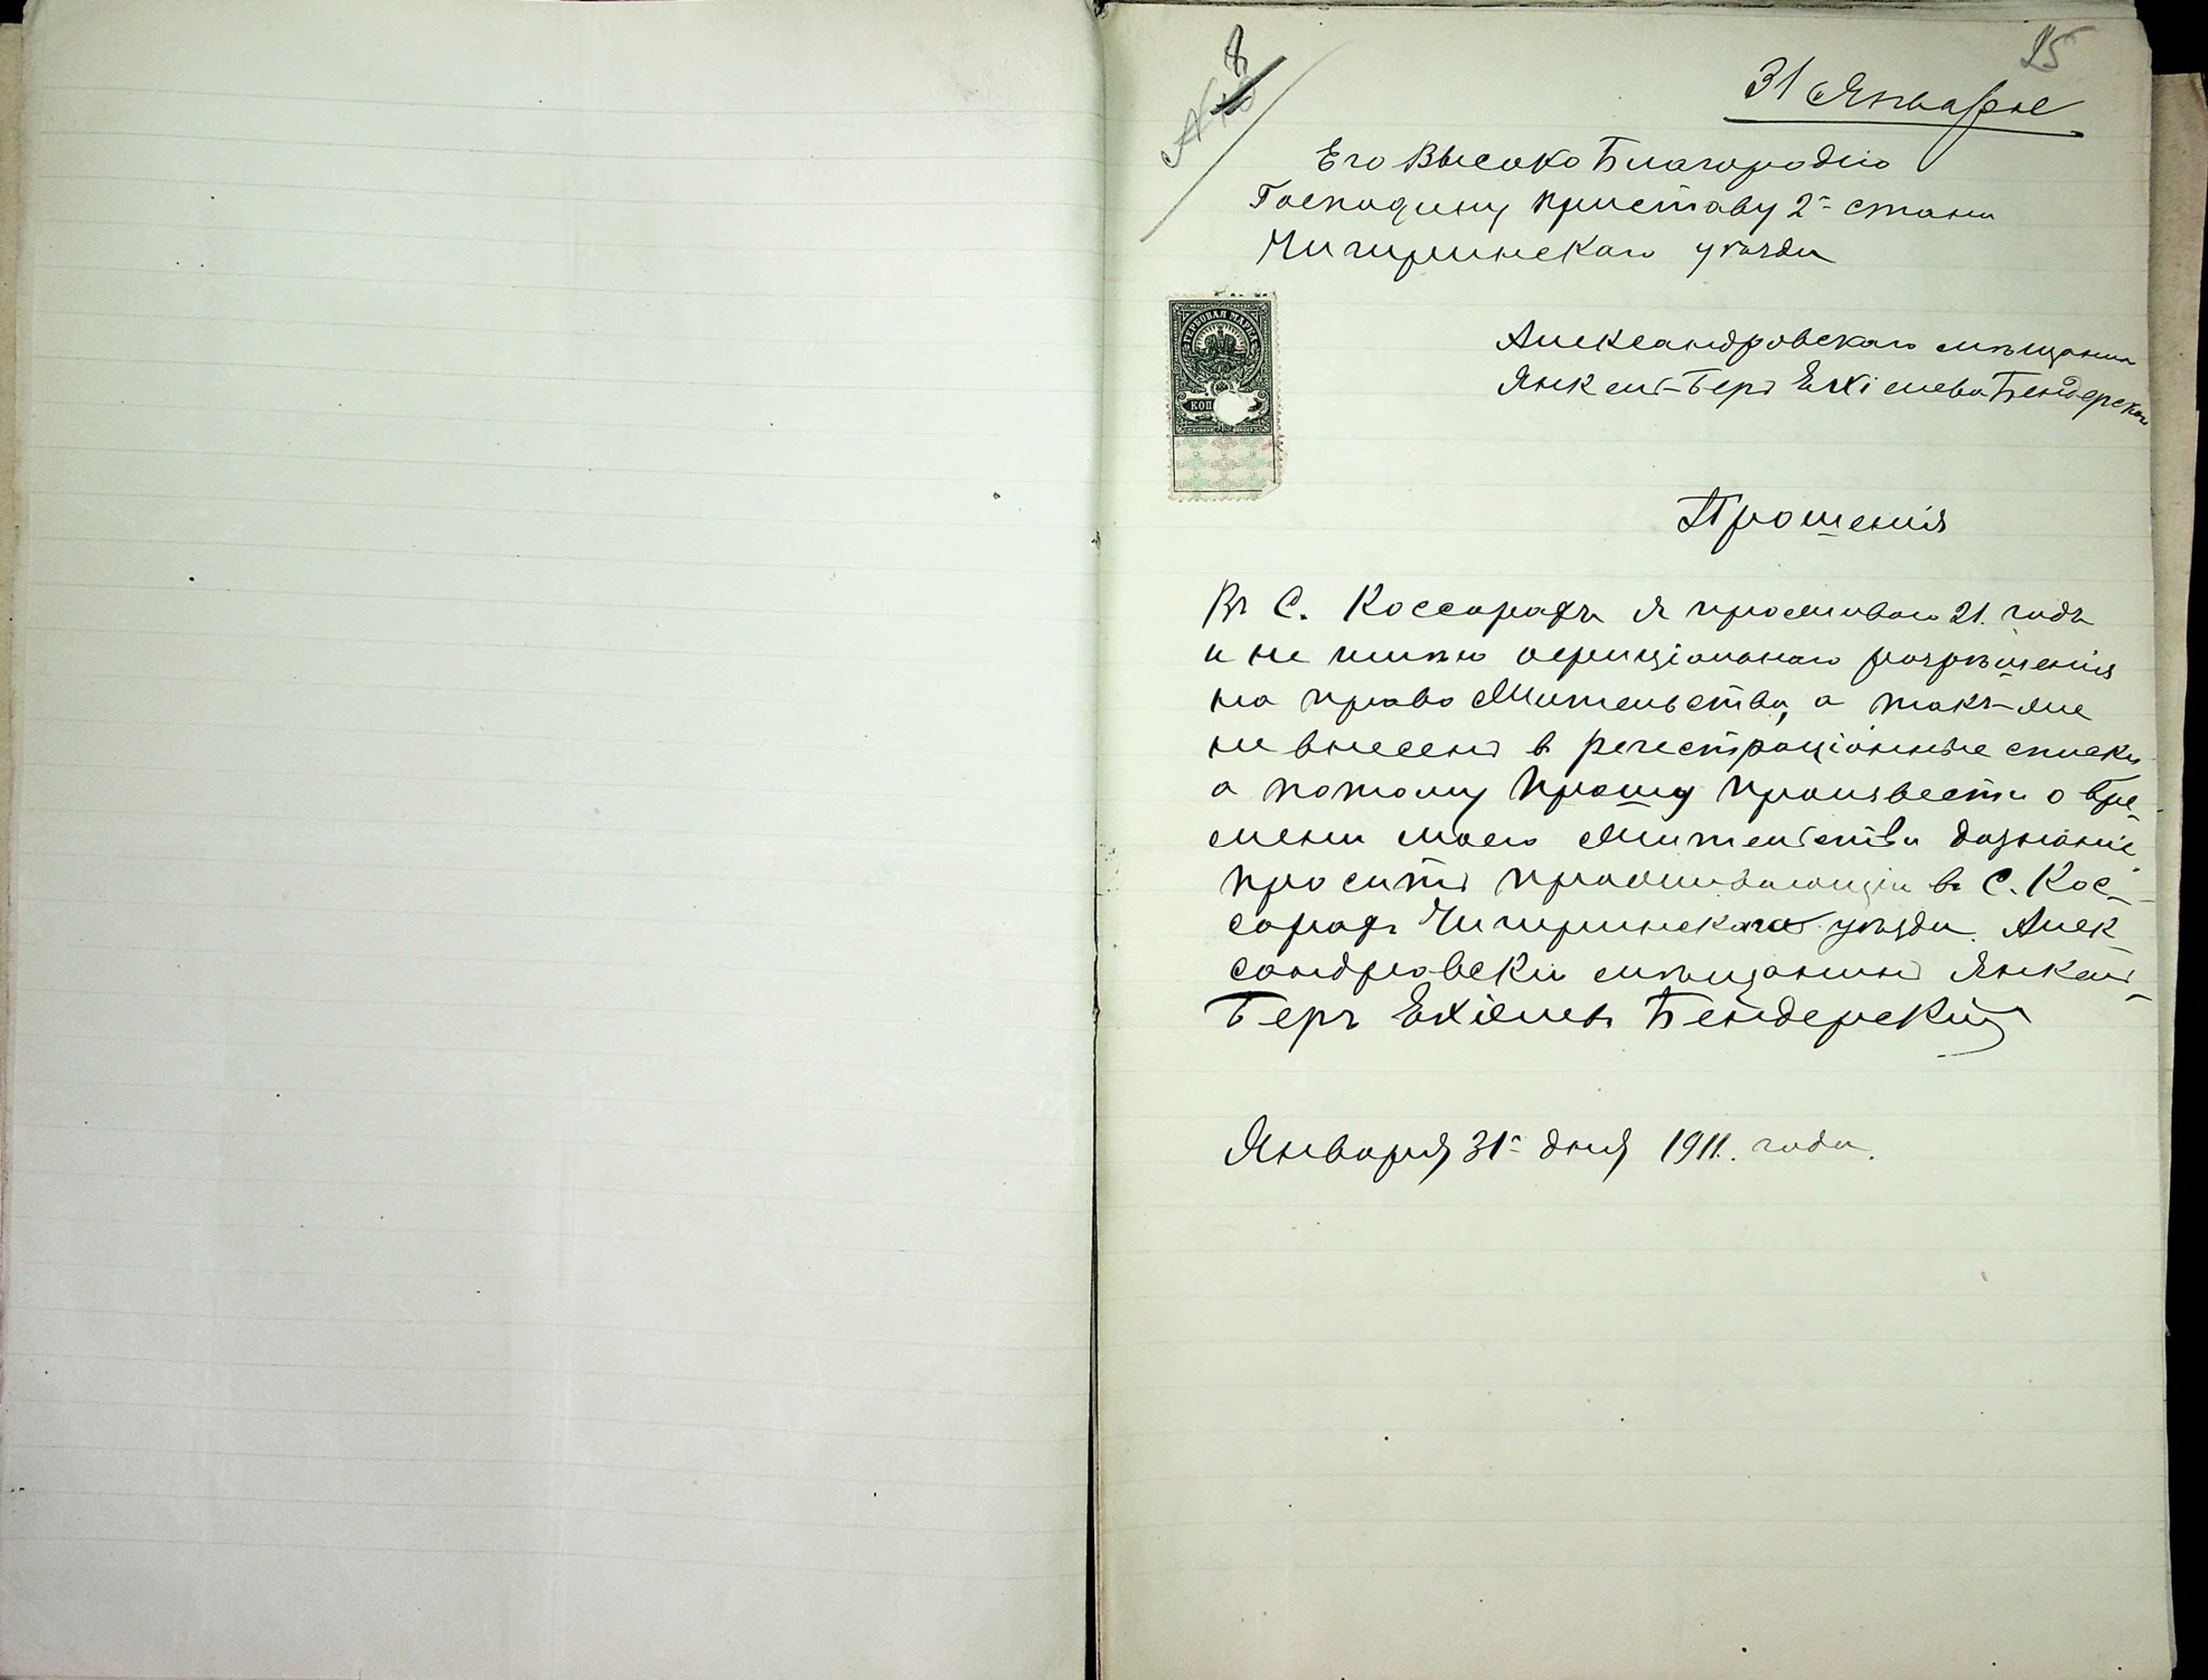 25
31 Января
Его Высоко Благородiю
Господину приставу 2˭ стана
Чигиринскаго уѣзда
ГЕРБОВАЯ МАРКА
КОП
Александровскаго мѣщанина
Янкель-Беръ Ехiелева Бендерскаго
Прошенiя
Въ С. Коссорадѣ я проживаю 21. годъ
и не имѣю оффицiональнаго разрѣшенiя
на право Жительства, а такъ-же
не внесенъ в регестрацiонные списки
а потому прошу произвести о вре-
мени моего Жительства дознанiе
проситъ проживающiи въ С. Кос-
сорадѣ Чигиринскаго уѣзда Алек-
сандровски мѣщанинъ Янкель-
Беръ Ехiелев Бендерскiй
Января 31˭ дня 1911. года.